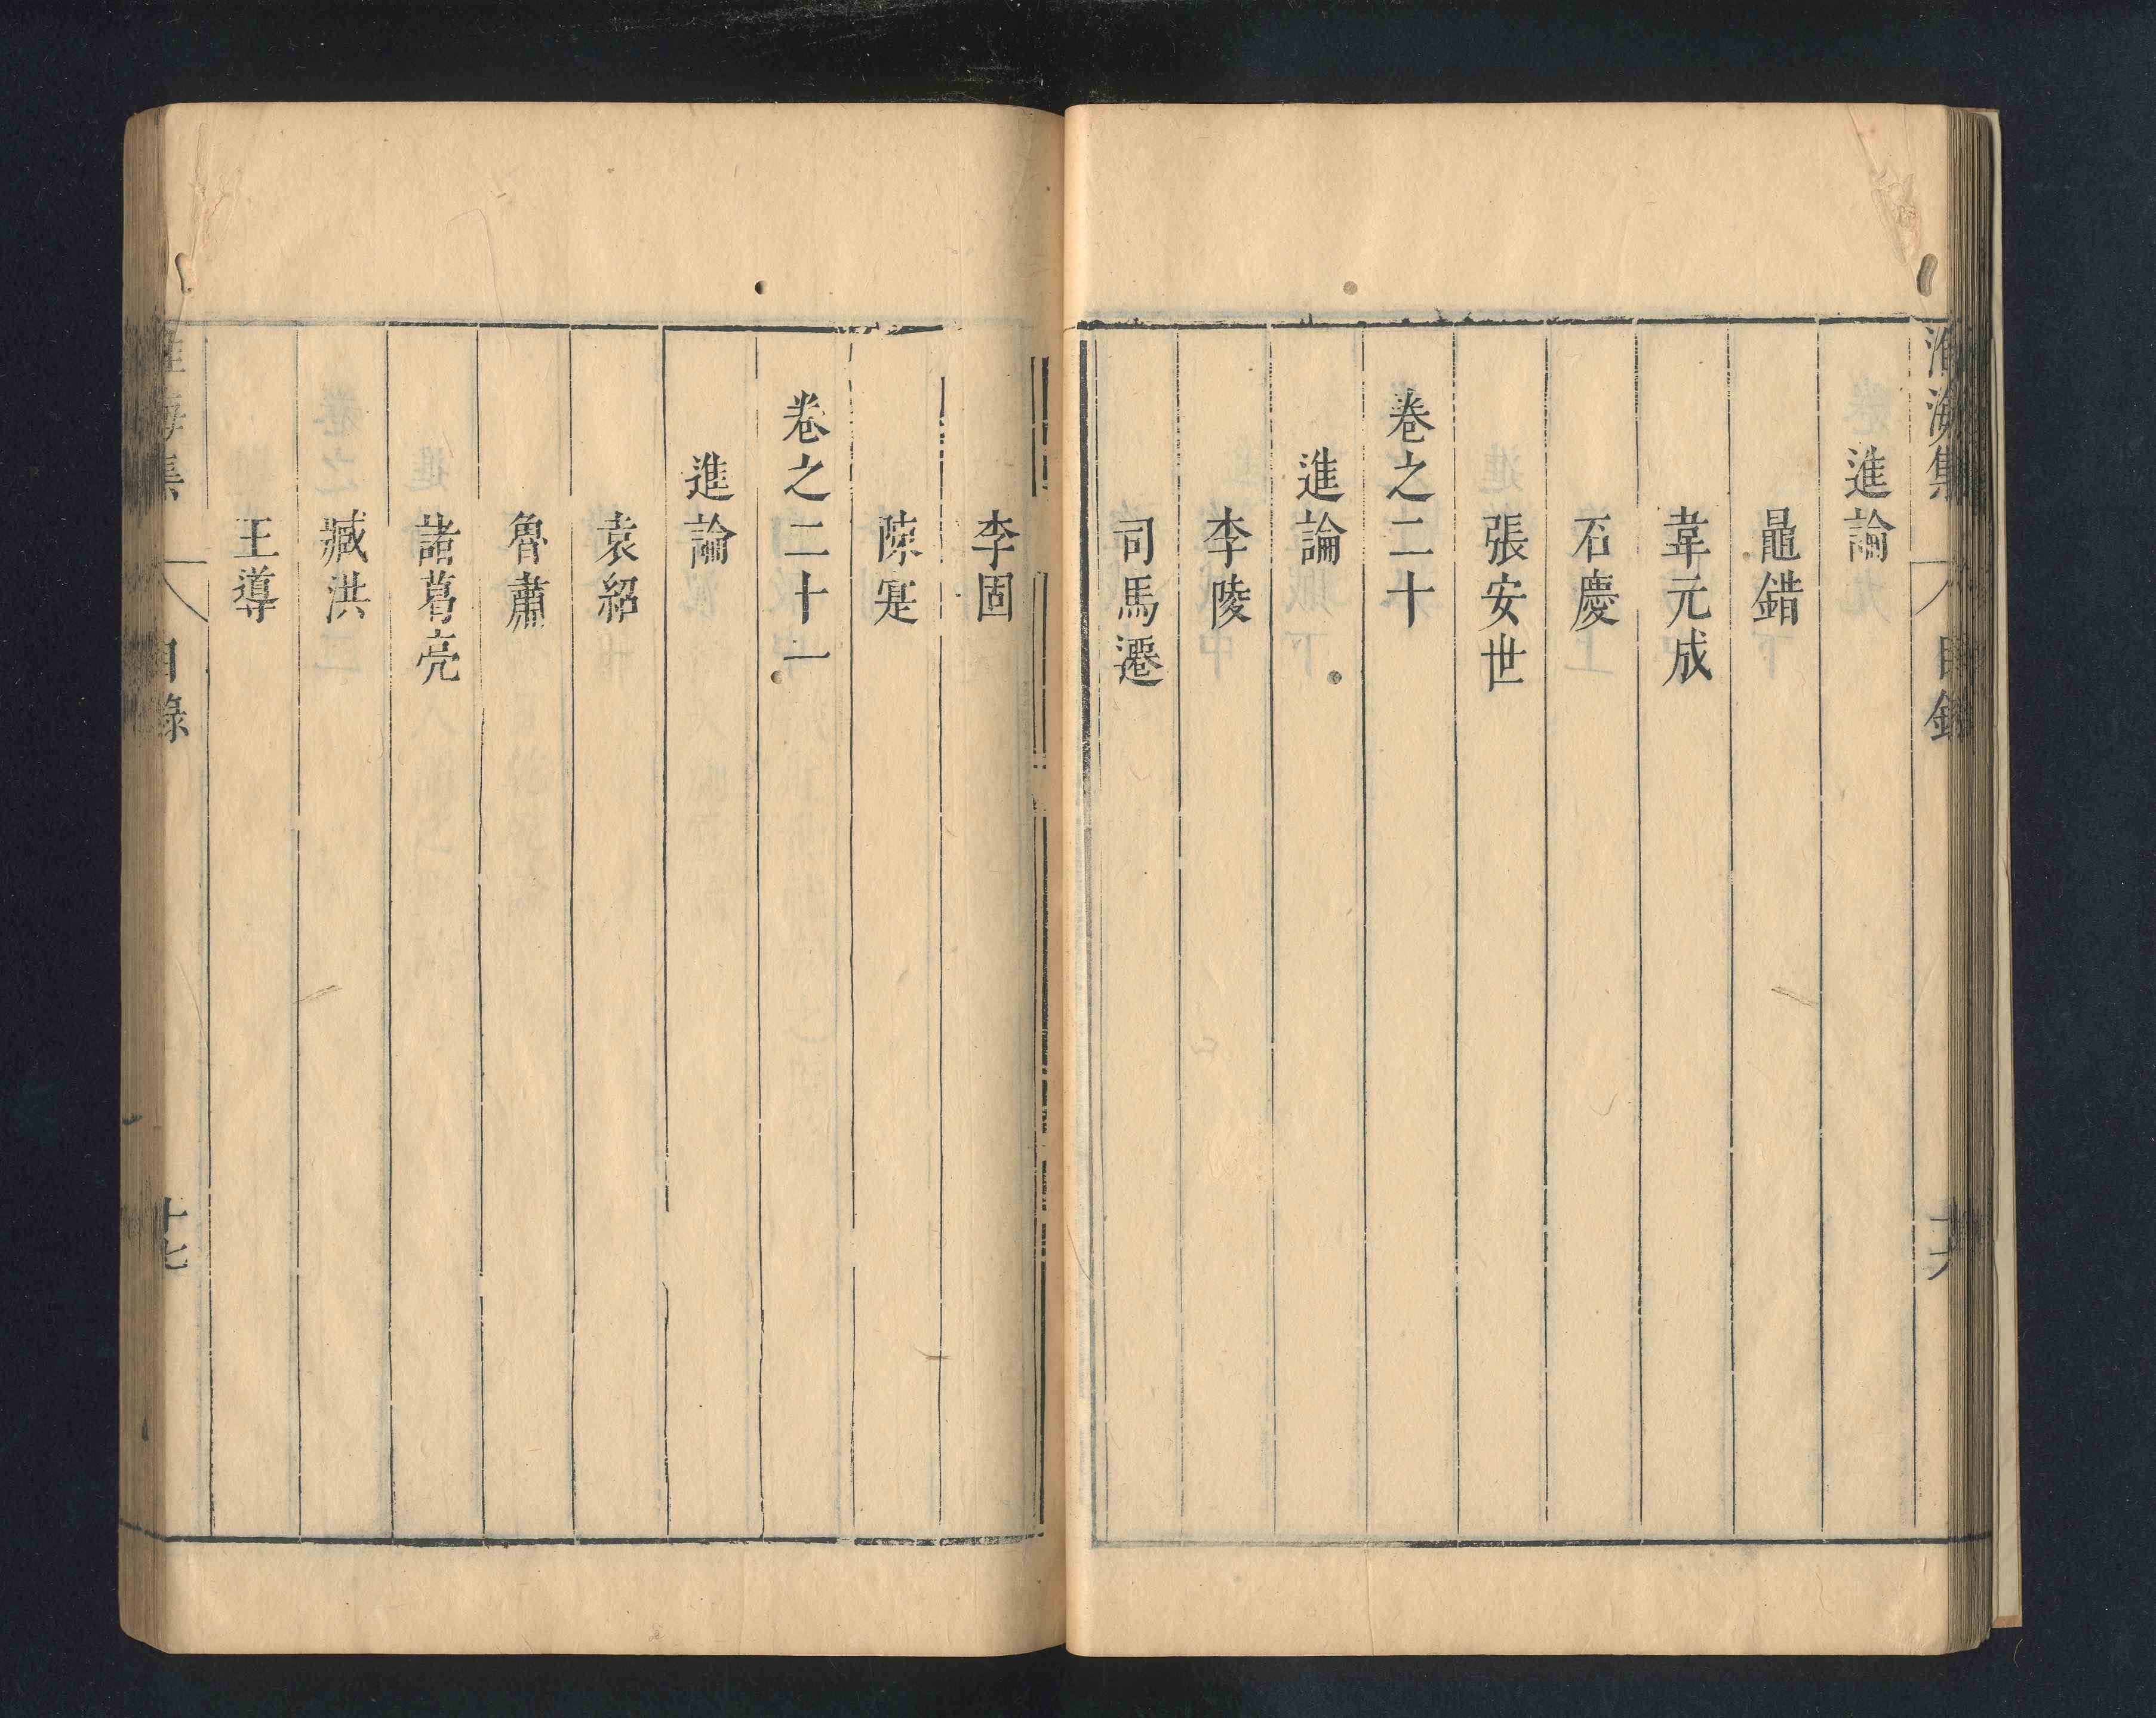 淮海集 目錄 十六
進論
鼂錯
韋元成
石慶
張安世
卷之二十
進論
李陵
司馬遷
李固
陳寔
卷之二十一
進論
袁紹
魯肅
諸葛亮
臧洪
王導
淮海集 目錄 十七